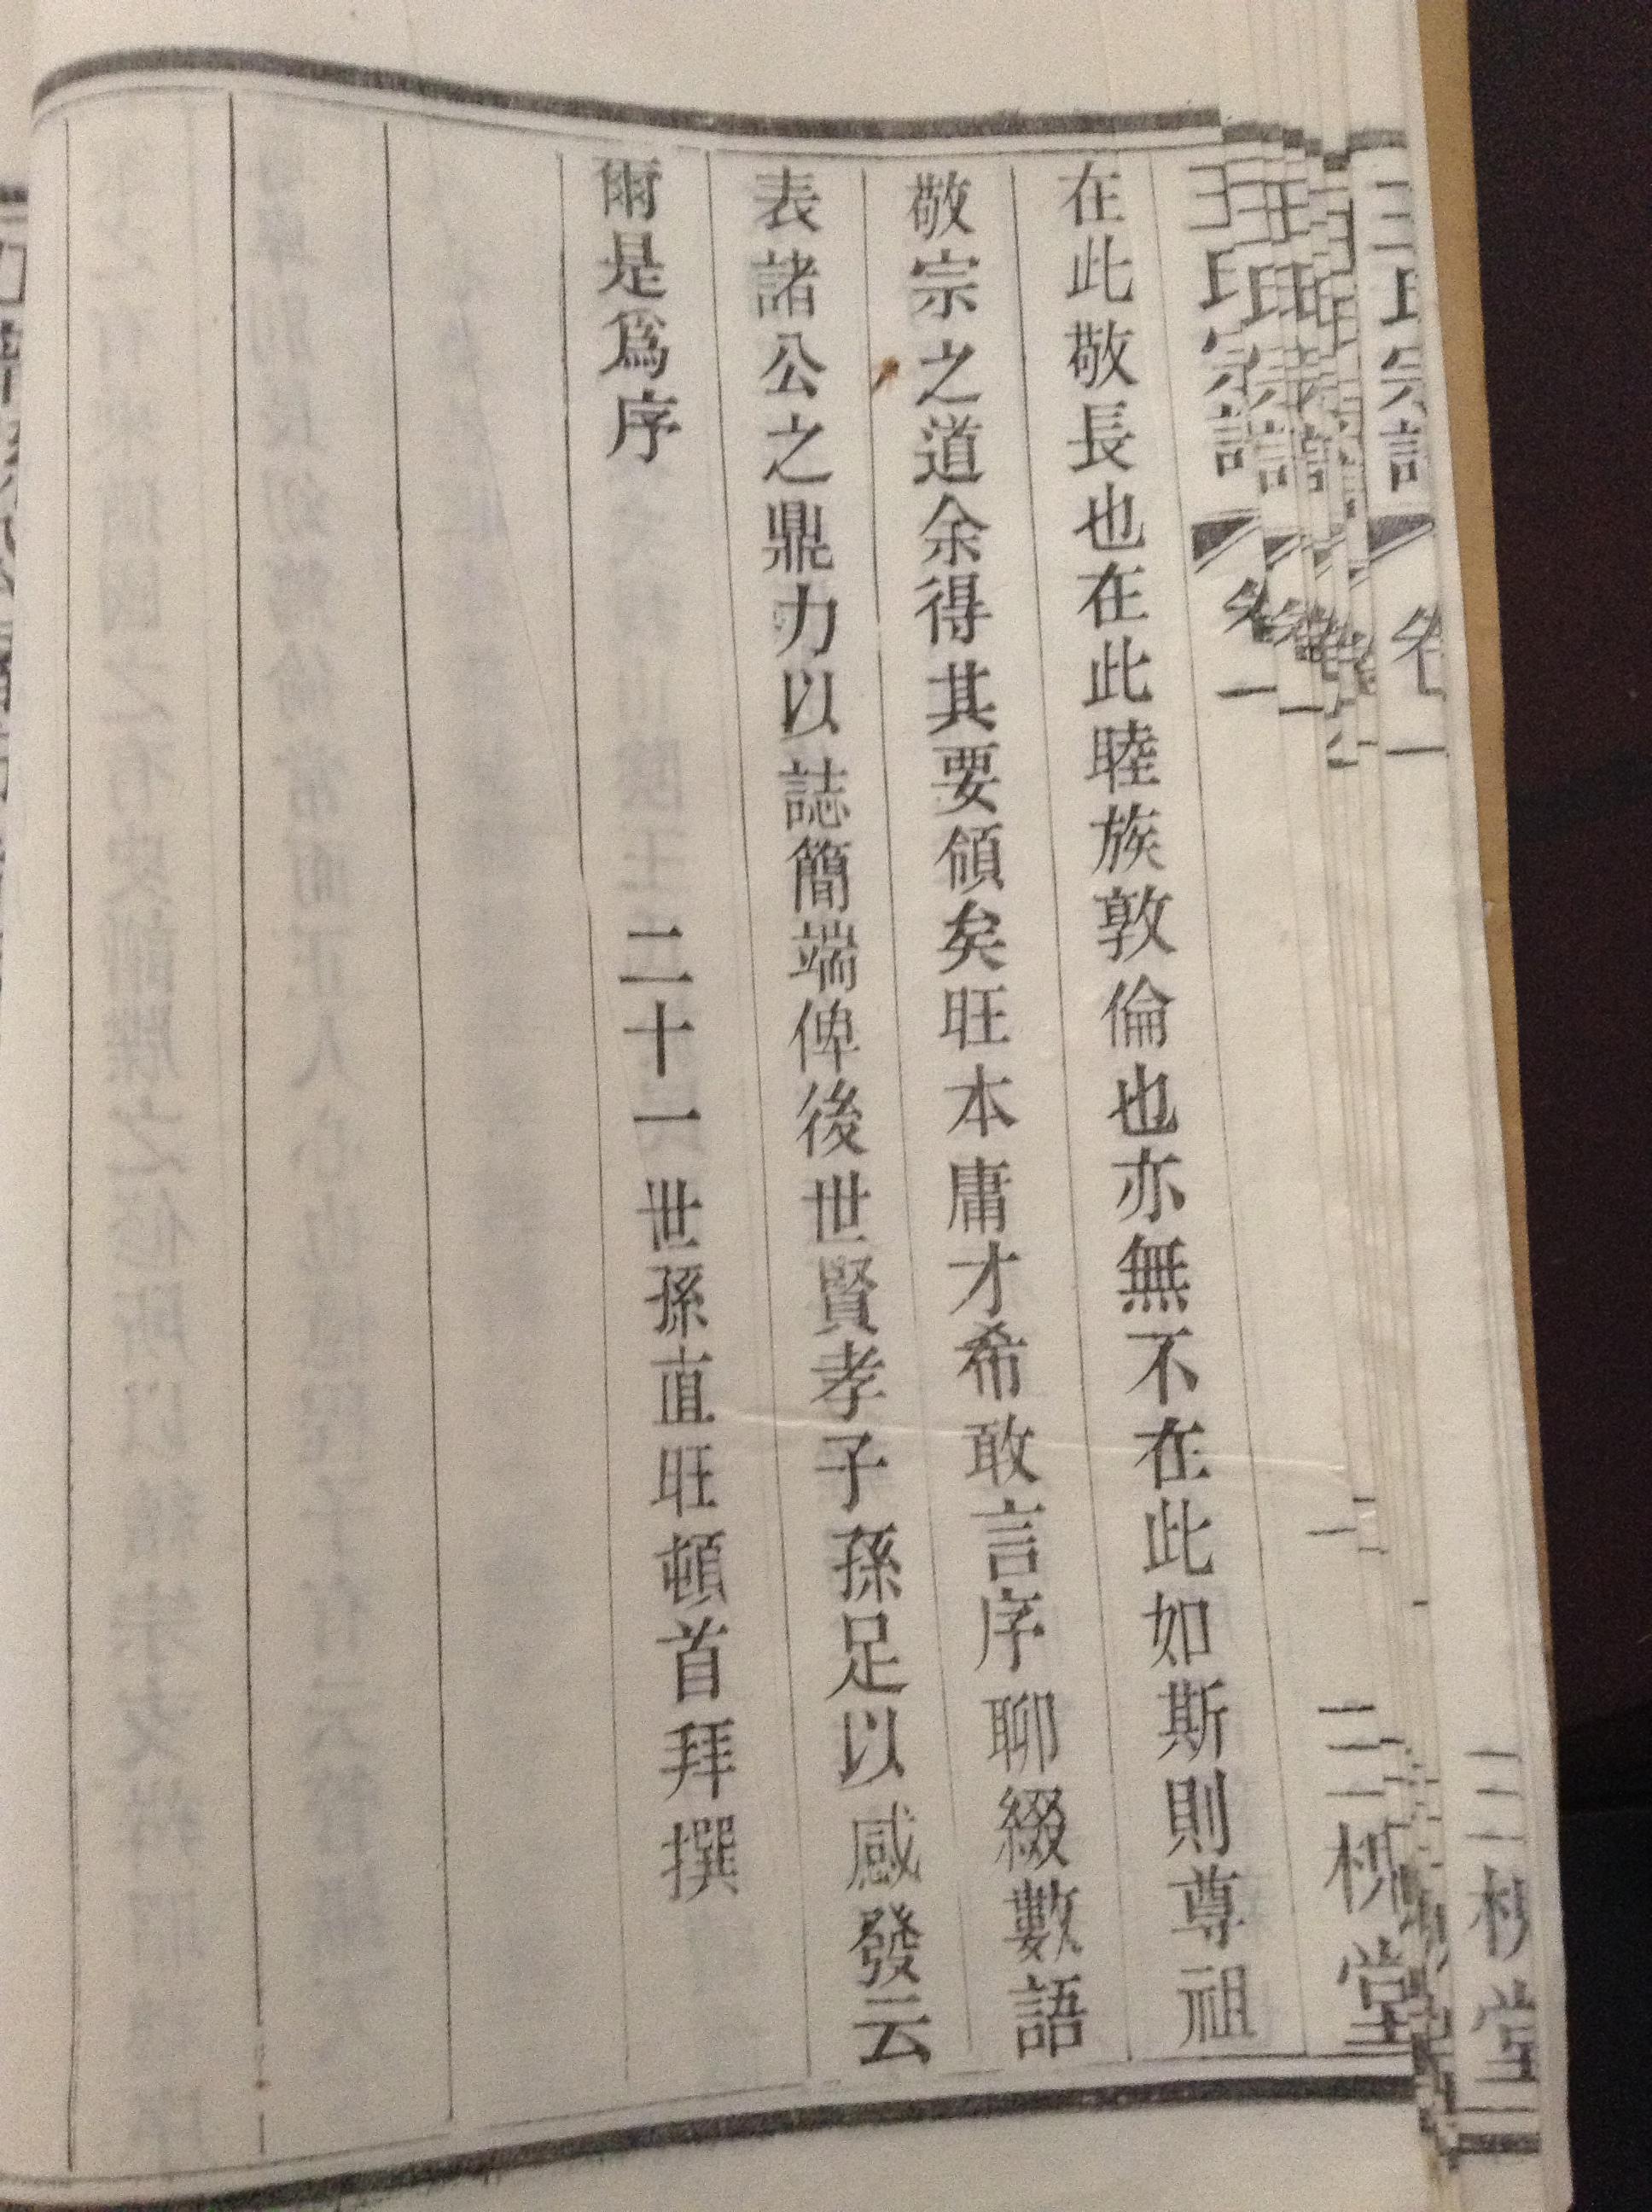 在此敬長也在此睦族敦倫也亦無不在此如斯則尊祖
敬宗之道余得其要領矣旺本庸才希敢言序聊綴數語
表諸公之鼎力以誌簡端俾後世賢孝子孫足以感發云
爾是爲序 二十一世孫直旺頓首拜撰